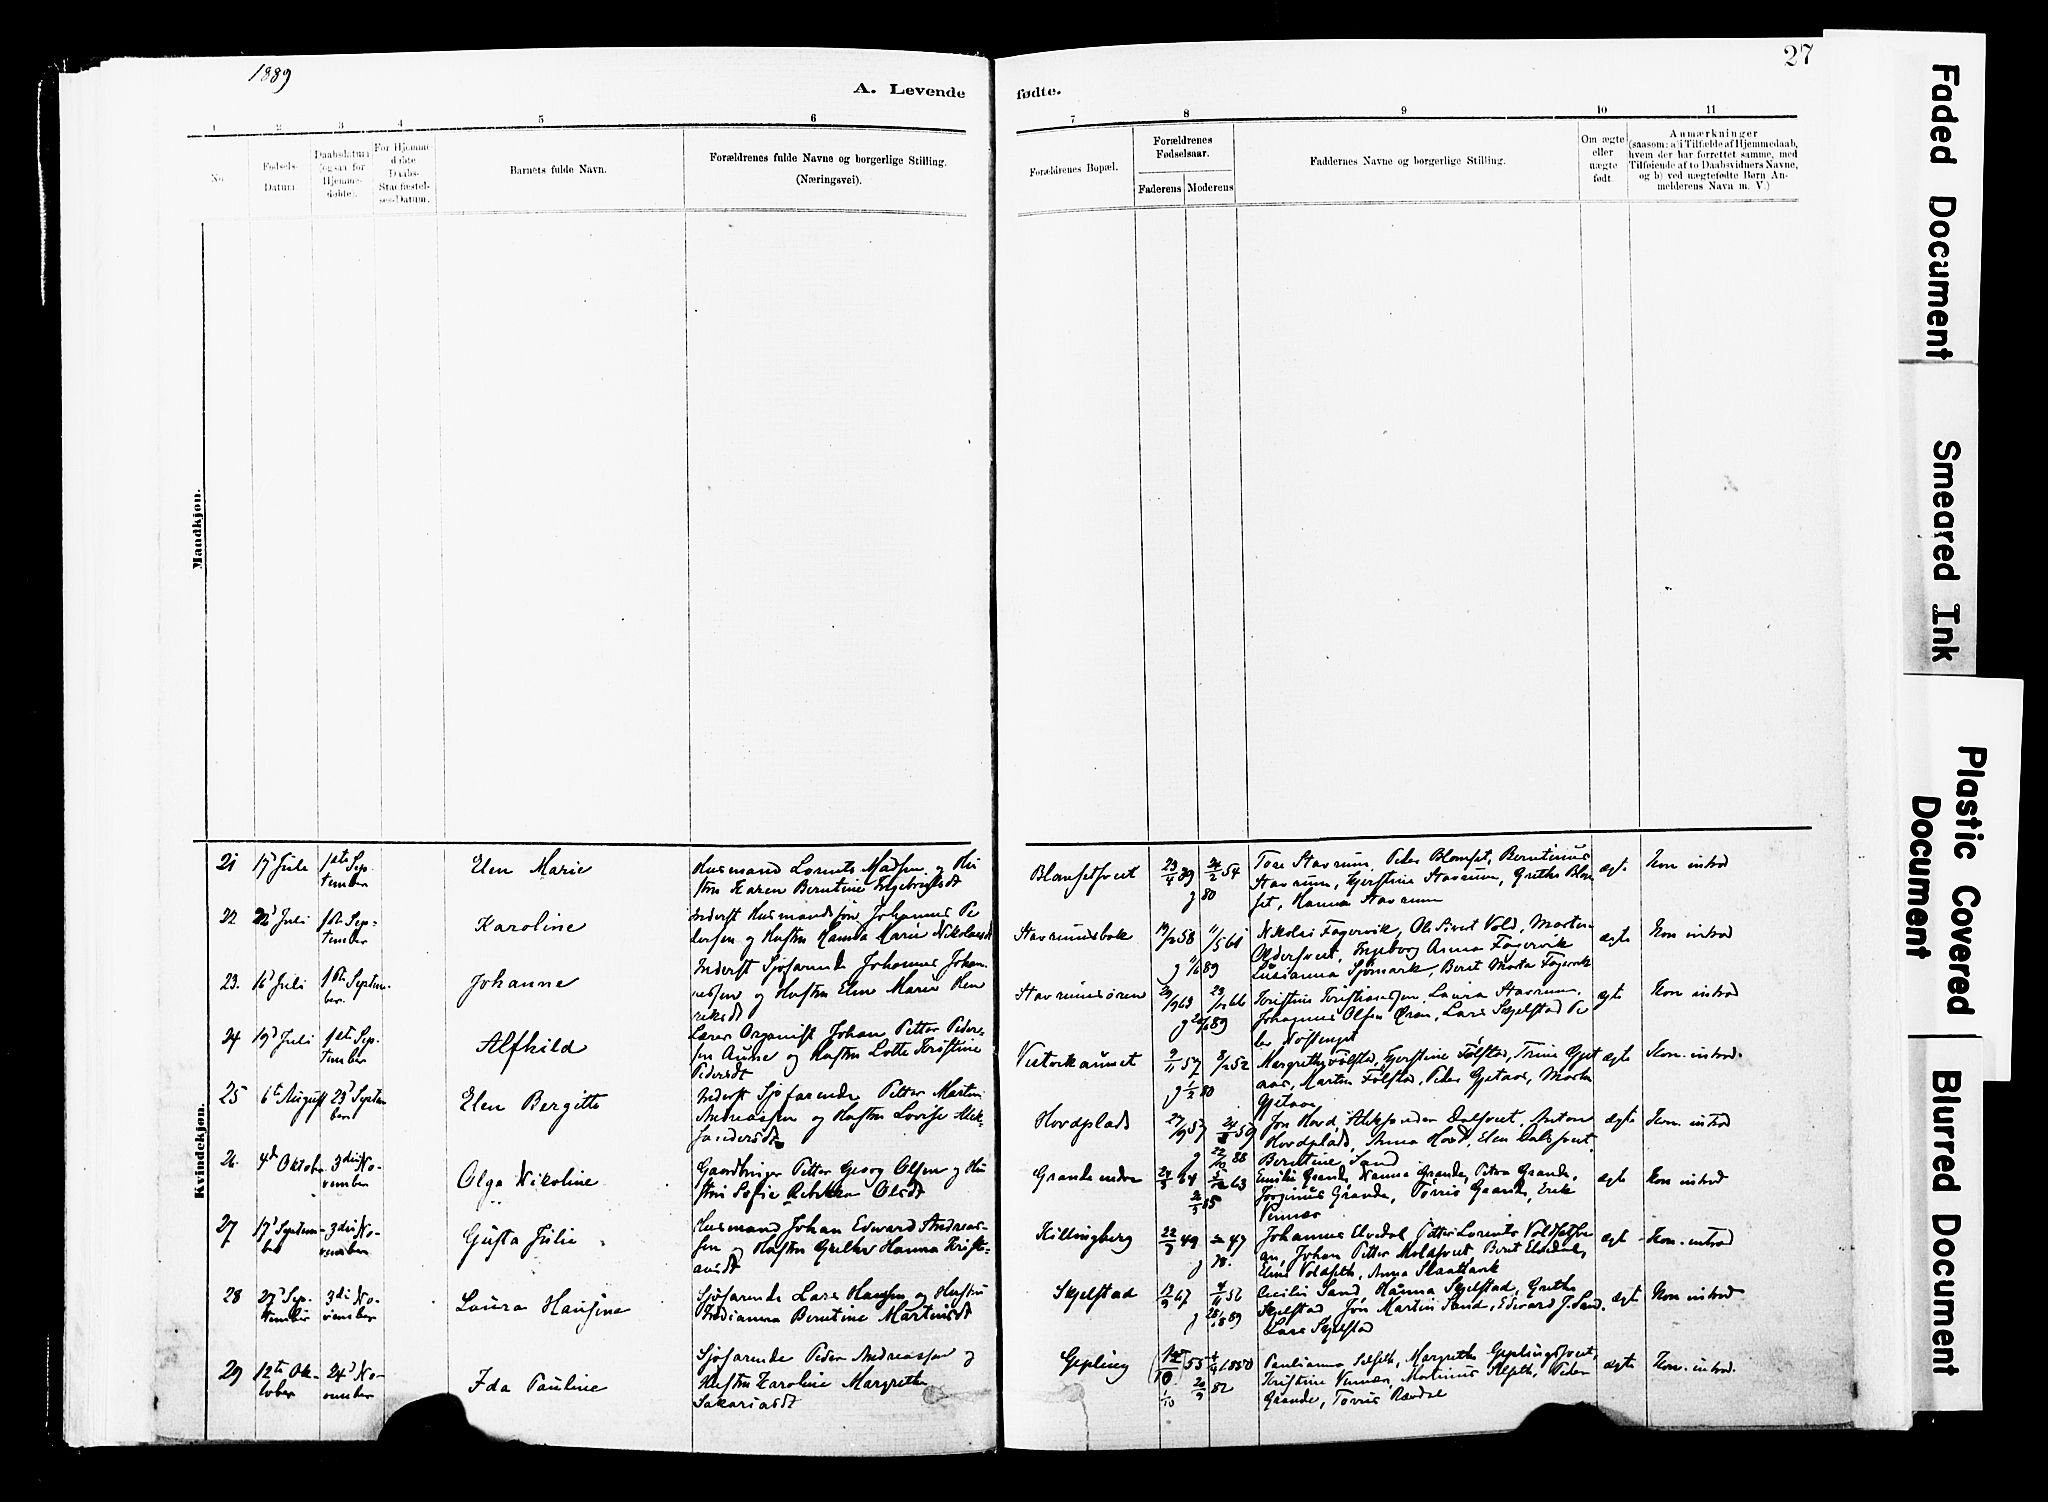 1889
27
A. Levende
fødte.
1 2 3 4 5 6
7 8 9 10 11
No.
Fødsels-
Datum
Daabsdatum
(ogsaa for
Hjemme-
døbte).
For Hjemme-
døbte
Daabs-
Stadfæstel-
ses-Datum.
Barnets fulde Navn.
Forældrenes fulde Navne og borgerlige Stilling.
(Næringsvei).
Forældrenes Bopæl.
Forældrenes
Fødselsaar.
Faderens Moderens
Faddernes Navne og borgerlige Stilling.
Om ægte
eller
uægte
født.
Anmærkninger
(saasom: a) i Tilfælde af Hjemmedaab,
hvem der har forrettet samme, med
Tilføiende af to Daabsvidners Navne,
og b) ved uægtefødte Børn An-
melderens Navn m. V.)
Mandkjøn.
Kvindekjøn.
21
17d Juli
1ste Sep-
tember
Elen Marie
Husmand Lorents Madsen og Hu-
stru Karen Berntine
23/4 39
54
80
Tore Stavrum, Peder Blomset, Berntinus
Stavrum, Kjerstine Stavrum, Grethe Blom
set, Hanna Stavrum
ægte
Kon. introd
22
22d Juli
1ste Sep-
tember
Karoline
Inderst Husmandssøn Johannes Pe
dersen og Hustru Hanna Marie Nikolausdt
Stavrumsbak
58
11/5 61
89
Nikolai Fagervik, Ole Sivert Vold, Morten
Olderfvet, Ingeborg Anna Fagervik
Lusianna Sjømark, Berit Marta Fagervik
ægte
Kon introd
23.
16d Juli
1ste Septem-
ber.
Johanne
Inderst Sjøfarende Johannes Johan-
nessen og Hustru Elen Marie Hen
riksdt
Stavrumsøren
63
66
89
Kristine Kristiansen, Laura Stavrum,
Johannes Olsen Øran, Lars Skjelstad Pe
der
ægte
Kon introd
24
19d Juli
1ste Sep-
tember
Alfhild
Lærer Organist Johan Petter Peder-
sen Aune og Hustru Lotte Kristine
Pedersdt
57
52
80
Margrethe Følstad, Kjerstine Følstad, Trine Gjet
aas, Martin Følstad, Peder Gjetaas, Morten
Gjetaas
ægte
Kon. introd.
25
6te August
22d Septem
ber
Elen Bergitte
Inderst Sjøfarende Petter Martin
Andreassen og Hustru Lovise Alek-
sandersdt
Hovdplads
57
59
88
Jon Hovd, Aleksander Dalsvet, Anton
Hovdplads, Anna Hovd, Elen Dalsvet,
Berntine Sand
ægte
Kon. introd
26.
4de Oktober
3die No-
vember
Olga Nikoline
Gaardbruger Petter Georg Olsen og Hu
stru Sofie Rebekka Olsdt
Grande nedre
64
63
85
Emilie Grande, Hanna Grande, Petra Grande,
Jørginus Grande, Tørris Grande, Erik
Vennes
ægte
Kon introd
27
17d Septem-
ber
3die No-
vember
Gusta Julie
Husmand Johan Edvard Andreas-
sen og Hustru Grethe Hanna Kristi-
ansdt
Killingberg
49
47
78.
Johannes Elvedal, Petter Lorents
Johan Petter Moldsvet Berit Elvedal,
Elen Voldseth, Anna
ægte
Kon. introd
28
27d Sep-
tember
3die No-
vember
Laura Hansine
Sjøfarende Lars Hansen og Hustru
Indianna Berntine Martinsdt
Skjelstad
12/9 67
4/11 56
89
Cecilie Sand, Hanna Skjelstad, Grethe
Skjelstad Jon Martin Sand, Edvard J. Sand.
Lars Skjelstad
ægte
Kon introd
29
12te Ok-
tober
24d No-
vember
Ida Pauline
Sjøfarende Peder Andreassen og
Hustru Karoline Margrethe
Sakariasdt
Gipling
55
1850
82
Paulianna Selseth, Margrethe Giplingsvet,
Kristine Vennes, Martinus Selseth, Peder
Grande, Tørris
ægte
Kon. introd.
Faded Document
Smeared Ink
Plastic Covered
Document
Blurred Document